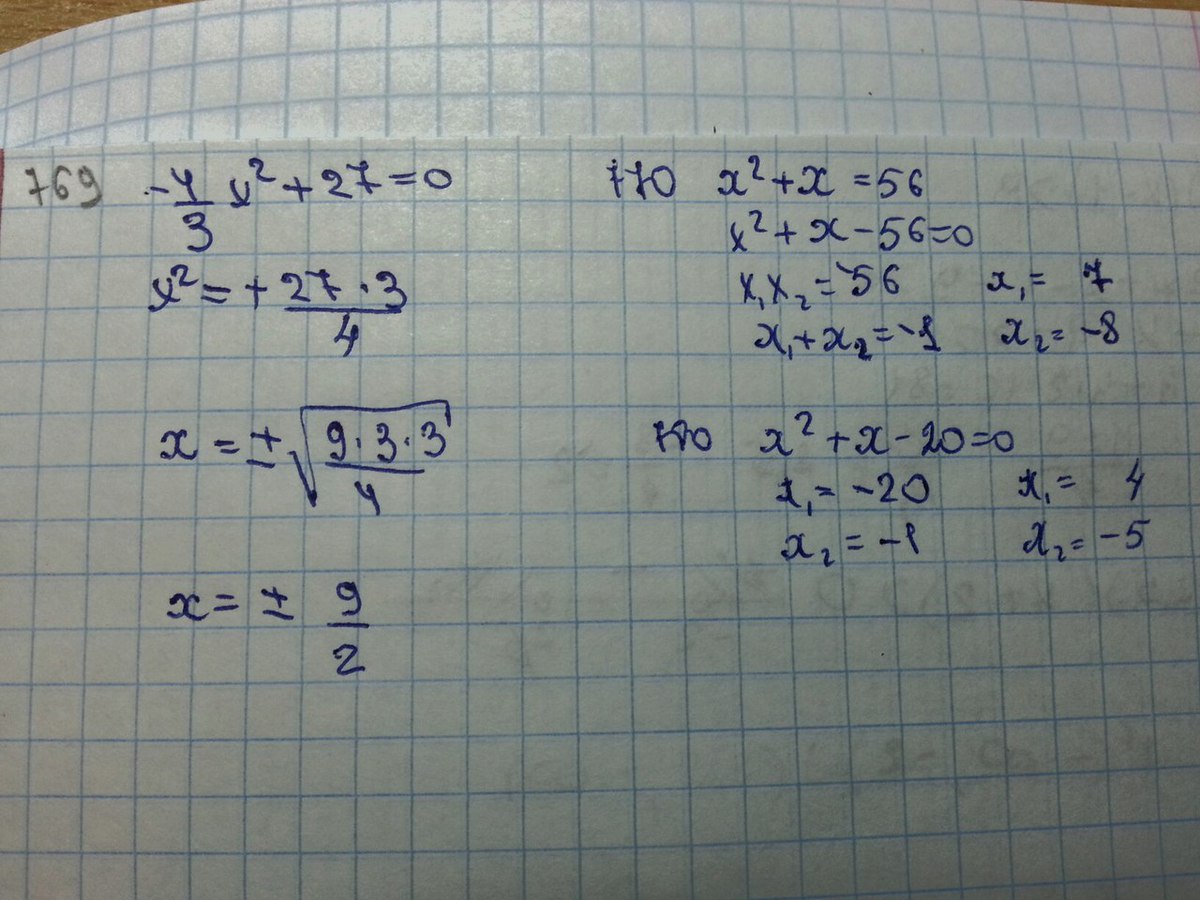 769 -4/3 x² + 27 = 0
x² = + 27·3/4
x = ± √(9·3·3/4)
x = ± 9/2
770 x² + x = 56
x² + x - 56 = 0
x₁x₂ = -56 x₁ = 7
x₁ + x₂ = -1 x₂ = -8
770 x² + x - 20 = 0
x₁ = -20 x₁ = 4
x₂ = -1 x₂ = -5